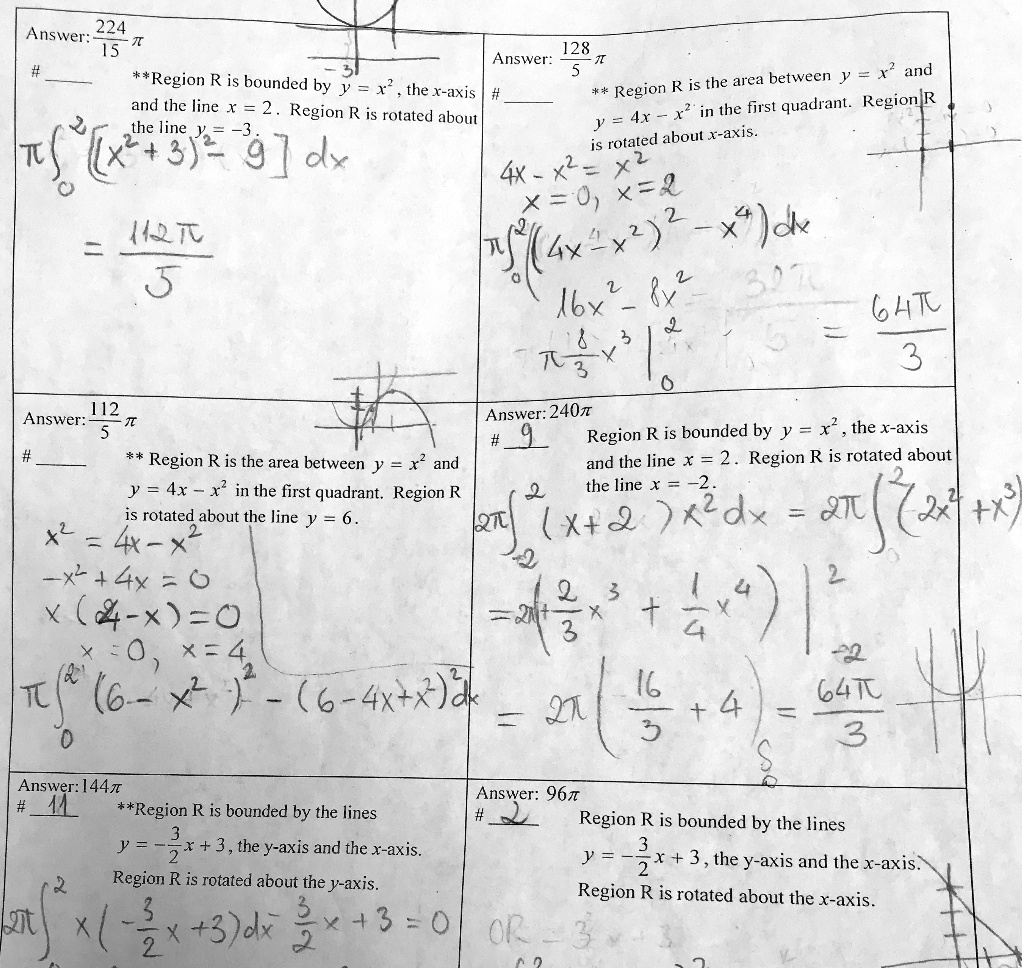 Answer: 224/15 π
-3
# ____ **Region R is bounded by y = x², the x-axis
and the line x = 2. Region R is rotated about
the line y = −3.
π∫₀² [(x² + 3)² − 9] dx
= 112π/5
Answer: 128/5 π
# ____ ** Region R is the area between y = x² and
y = 4x − x² in the first quadrant. Region R
is rotated about x-axis.
4x − x² = x²
x = 0, x = 2
π∫₀² ((4x − x²)² − x⁴) dx
16x² − 8x²
π 8/3 x³ |₀² = 64π/3
Answer: 112/5 π
# ____ ** Region R is the area between y = x² and
y = 4x − x² in the first quadrant. Region R
is rotated about the line y = 6.
x² = 4x − x²
−x² + 4x = 0
x (4 − x) = 0
x = 0, x = 4
π∫₀² (6 − x²)² − (6 − 4x + x²)² dx
Answer: 240π
# 9 Region R is bounded by y = x², the x-axis
and the line x = 2. Region R is rotated about
the line x = −2.
2π∫₋₂² (x + 2) x² dx = 2π∫² (2x² + x³)
= 2π(+2/3 x³ + 1/4 x⁴) |₋₂²
= 2π(16/3 + 4) = 64π/3
Answer: 144π
# 11 **Region R is bounded by the lines
y = −3/2 x + 3, the y-axis and the x-axis.
Region R is rotated about the y-axis.
2π∫² x(−3/2 x + 3) dx −3/2 x + 3 = 0
Answer: 96π
# 2 Region R is bounded by the lines
y = −3/2 x + 3, the y-axis and the x-axis.
Region R is rotated about the x-axis.